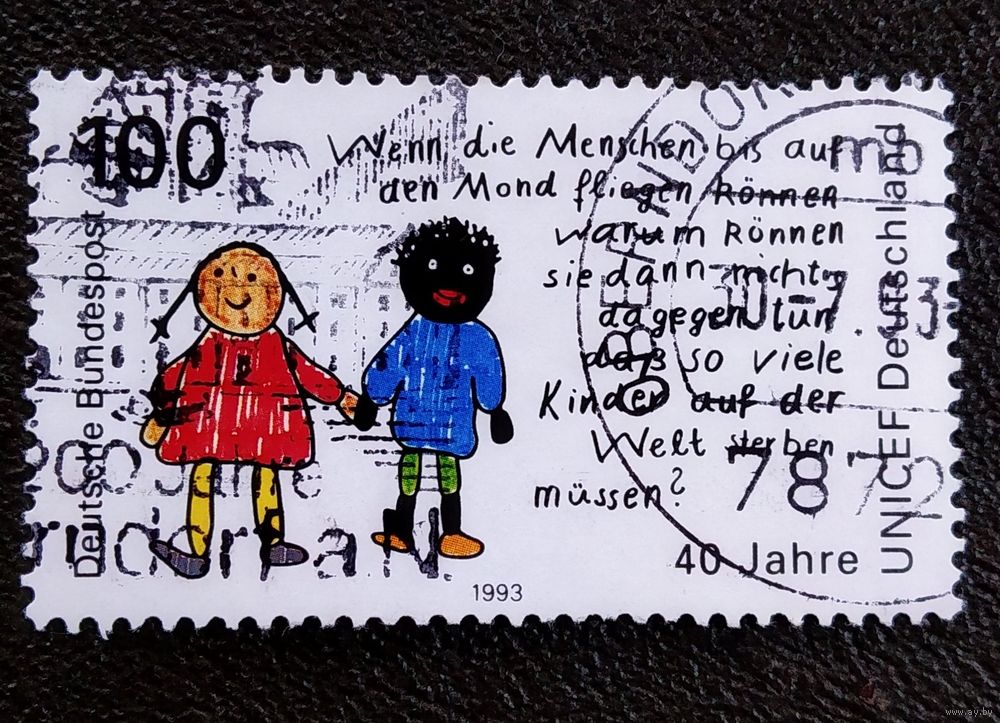 100
Deutsche Bundespost
Wenn die Menschen bis auf
den Mond fliegen können
warum können
sie dann nichts
dagegen tun
dass so viele
Kinder auf der
Welt sterben
müssen?
40 Jahre
UNICEF Deutschland
1993
787
www.ay.by